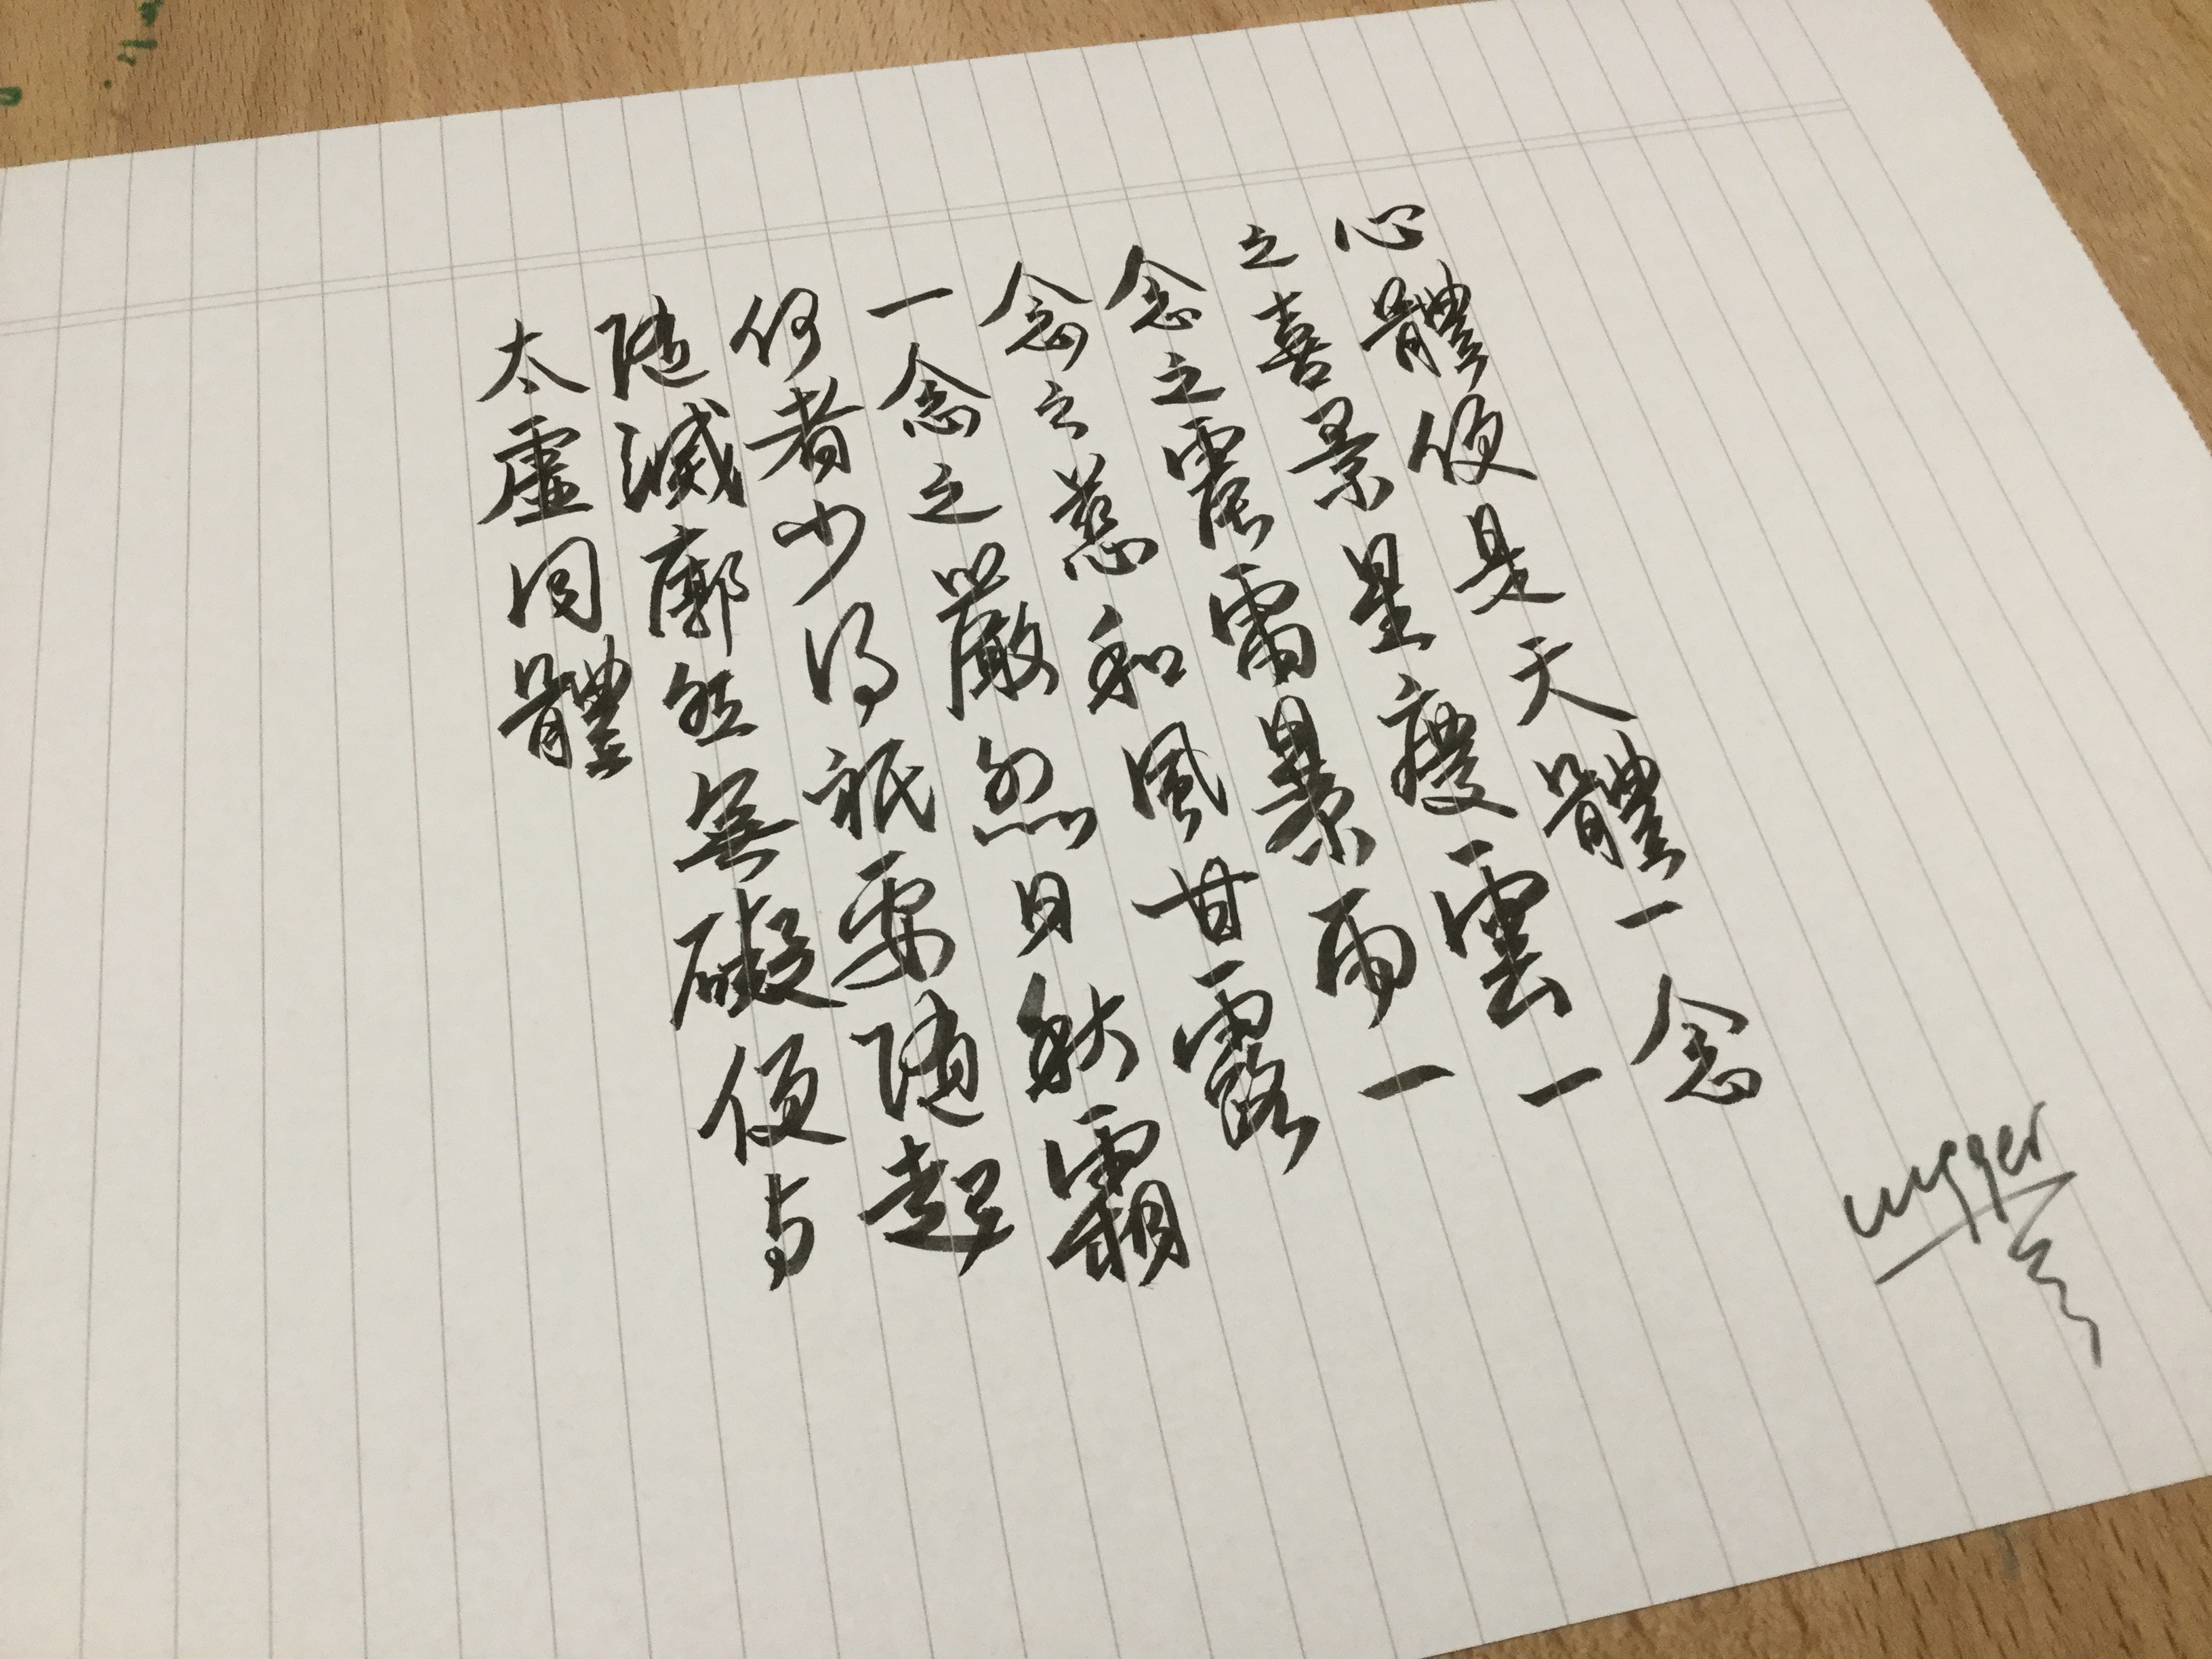 心體便是天體一念
之喜景星慶雲一
念之震雷暴雨一
念之慈和風甘露
一念之嚴烈日秋霜
何者少得祇要隨起
隨滅廓然無礙便与
太虛同體